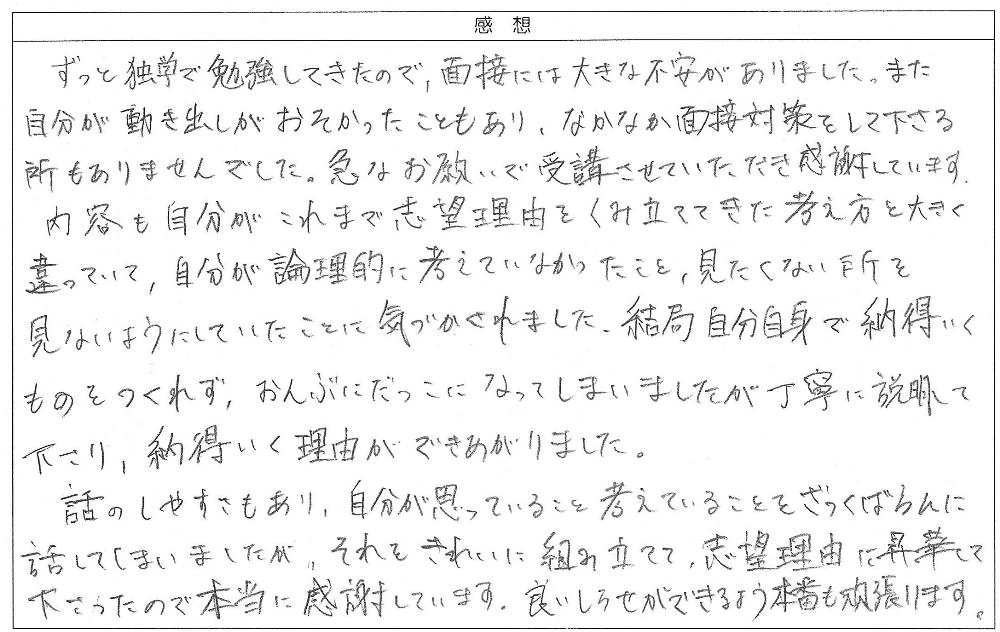 感想
ずっと独学で勉強してきたので，面接には大きな不安がありました。また
自分が動き出しがおそかったこともあり、なかなか面接対策をして下さる
所もありませんでした。急なお願いで受講させていただき感謝しています．
内容も自分がこれまで志望理由をくみ立ててきた考え方と大きく
違っていて，自分が論理的に考えていなかったこと，見たくない所を
見ないようにしていたことに気づかされました．結局自分自身で納得いく
ものをつくれず，おんぶにだっこになってしまいましたが丁寧に説明して
下さり，納得いく理由ができあがりました。
話のしやすさもあり，自分が思っていること考えていることをざっくばらんに
話してしまいましたが，それをきれいに組み立てて，志望理由に昇華して
下さったので本当に感謝しています．良いしらせができるよう本番も頑張ります。